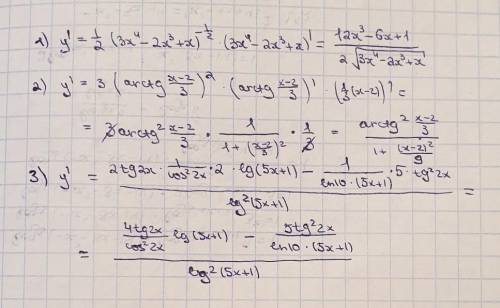 1) y' = 1/2 (3x⁴-2x³+x)^(-1/2) · (3x⁴-2x³+x)' = (12x³-6x+1)/(2√(3x⁴-2x³+x))
2) y' = 3 (arctg (x-2)/3)² · (arctg (x-2)/3)' · (1/3(x-2))' =
= 3arctg² (x-2)/3 · 1/(1+((x-2)/3)²) · 1/3 = (arctg² (x-2)/3)/(1+(x-2)²/9)
3) y' = (2tg2x · 1/cos²2x · 2 · lg(5x+1) - 1/(ln10·(5x+1)) · 5 · tg²2x)/(lg²(5x+1)) =
= ((4tg2x)/(cos²2x) lg(5x+1) - (5tg²2x)/(ln10·(5x+1)))/(lg²(5x+1))